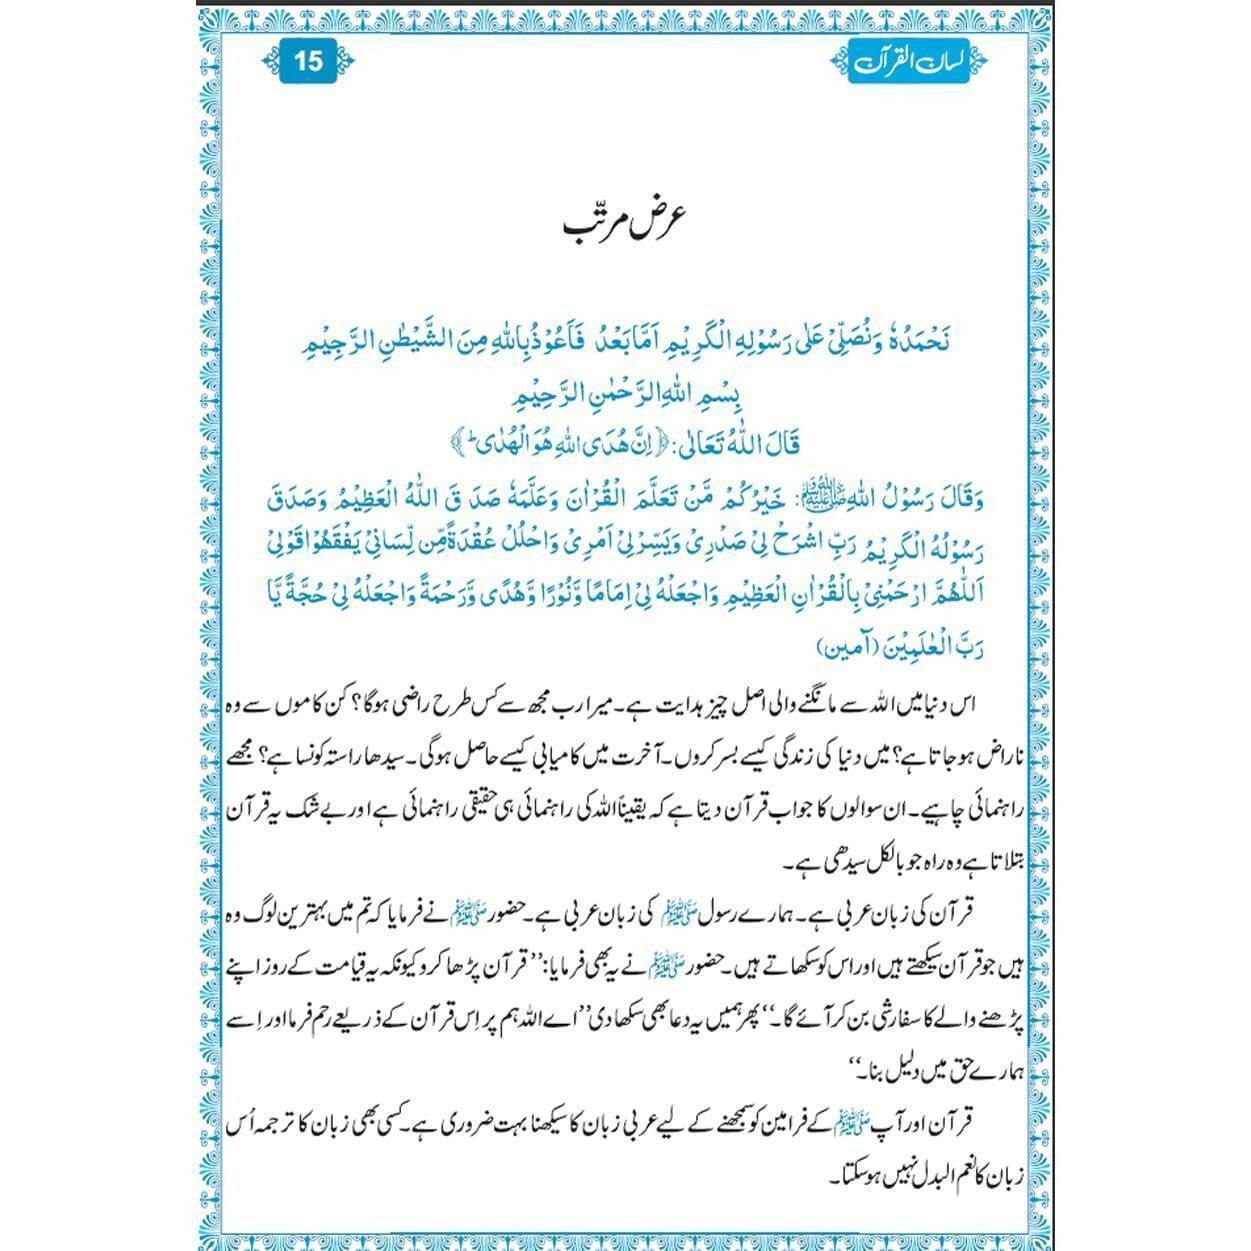 لسان القرآن
15
عرض مرتّب
نَحْمَدُهٗ وَنُصَلِّیْ عَلٰی رَسُوْلِهِ الْكَرِیْمِ اَمَّا بَعْدُ فَاَعُوْذُ بِاللّٰهِ مِنَ الشَّیْطٰنِ الرَّجِیْمِ
بِسْمِ اللّٰهِ الرَّحْمٰنِ الرَّحِیْمِ
قَالَ اللّٰهُ تَعَالٰی: ﴿اِنَّ هُدَی اللّٰهِ هُوَ الْهُدٰی ؕ﴾
وَقَالَ رَسُوْلُ اللّٰهِ ﷺ: خَیْرُكُمْ مَّنْ تَعَلَّمَ الْقُرْاٰنَ وَعَلَّمَهٗ صَدَ قَ اللّٰهُ الْعَظِیْمُ وَصَدَقَ
رَسُوْلُهُ الْكَرِیْمُ رَبِّ اشْرَحْ لِیْ صَدْرِیْ وَیَسِّرْ لِیْ اَمْرِیْ وَاحْلُلْ عُقْدَةً مِّن لِّسَانِیْ یَفْقَهُوْا قَوْلِیْ
اَللّٰهُمَّ ارْحَمْنِیْ بِالْقُرْاٰنِ الْعَظِیْمِ وَاجْعَلْهُ لِیْ اِمَامًا وَّنُوْرًا وَّهُدًی وَّرَحْمَةً وَاجْعَلْهُ لِیْ حُجَّةً یَّا
رَبَّ الْعٰلَمِیْنَ (آمین)
اس دنیا میں اللہ سے مانگنے والی اصل چیز ہدایت ہے۔ میرا رب مجھ سے کس طرح راضی ہوگا؟ کن کاموں سے وہ
ناراض ہو جاتا ہے؟ میں دنیا کی زندگی کیسے بسر کروں۔ آخرت میں کامیابی کیسے حاصل ہوگی۔ سیدھا راستہ کونسا ہے؟ مجھے
راہنمائی چاہیے۔ ان سوالوں کا جواب قرآن دیتا ہے کہ یقیناً اللہ کی راہنمائی ہی حقیقی راہنمائی ہے اور بے شک یہ قرآن
بتلاتا ہے وہ راہ جو بالکل سیدھی ہے۔
قرآن کی زبان عربی ہے۔ ہمارے رسول ﷺ کی زبان عربی ہے۔ حضور ﷺ نے فرمایا کہ تم میں بہترین لوگ وہ
ہیں جو قرآن سیکھتے ہیں اور اس کو سکھاتے ہیں۔ حضور ﷺ نے یہ بھی فرمایا: ’’قرآن پڑھا کرو کیونکہ یہ قیامت کے روز اپنے
پڑھنے والے کا سفارشی بن کر آئے گا۔‘‘ پھر ہمیں یہ دعا بھی سکھا دی ’’اے اللہ ہم پر اِس قرآن کے ذریعے رحم فرما اور اِسے
ہمارے حق میں دلیل بنا۔‘‘
قرآن اور آپ ﷺ کے فرامین کو سمجھنے کے لیے عربی زبان کا سیکھنا بہت ضروری ہے۔ کسی بھی زبان کا ترجمہ اُس
زبان کا نعم البدل نہیں ہو سکتا۔